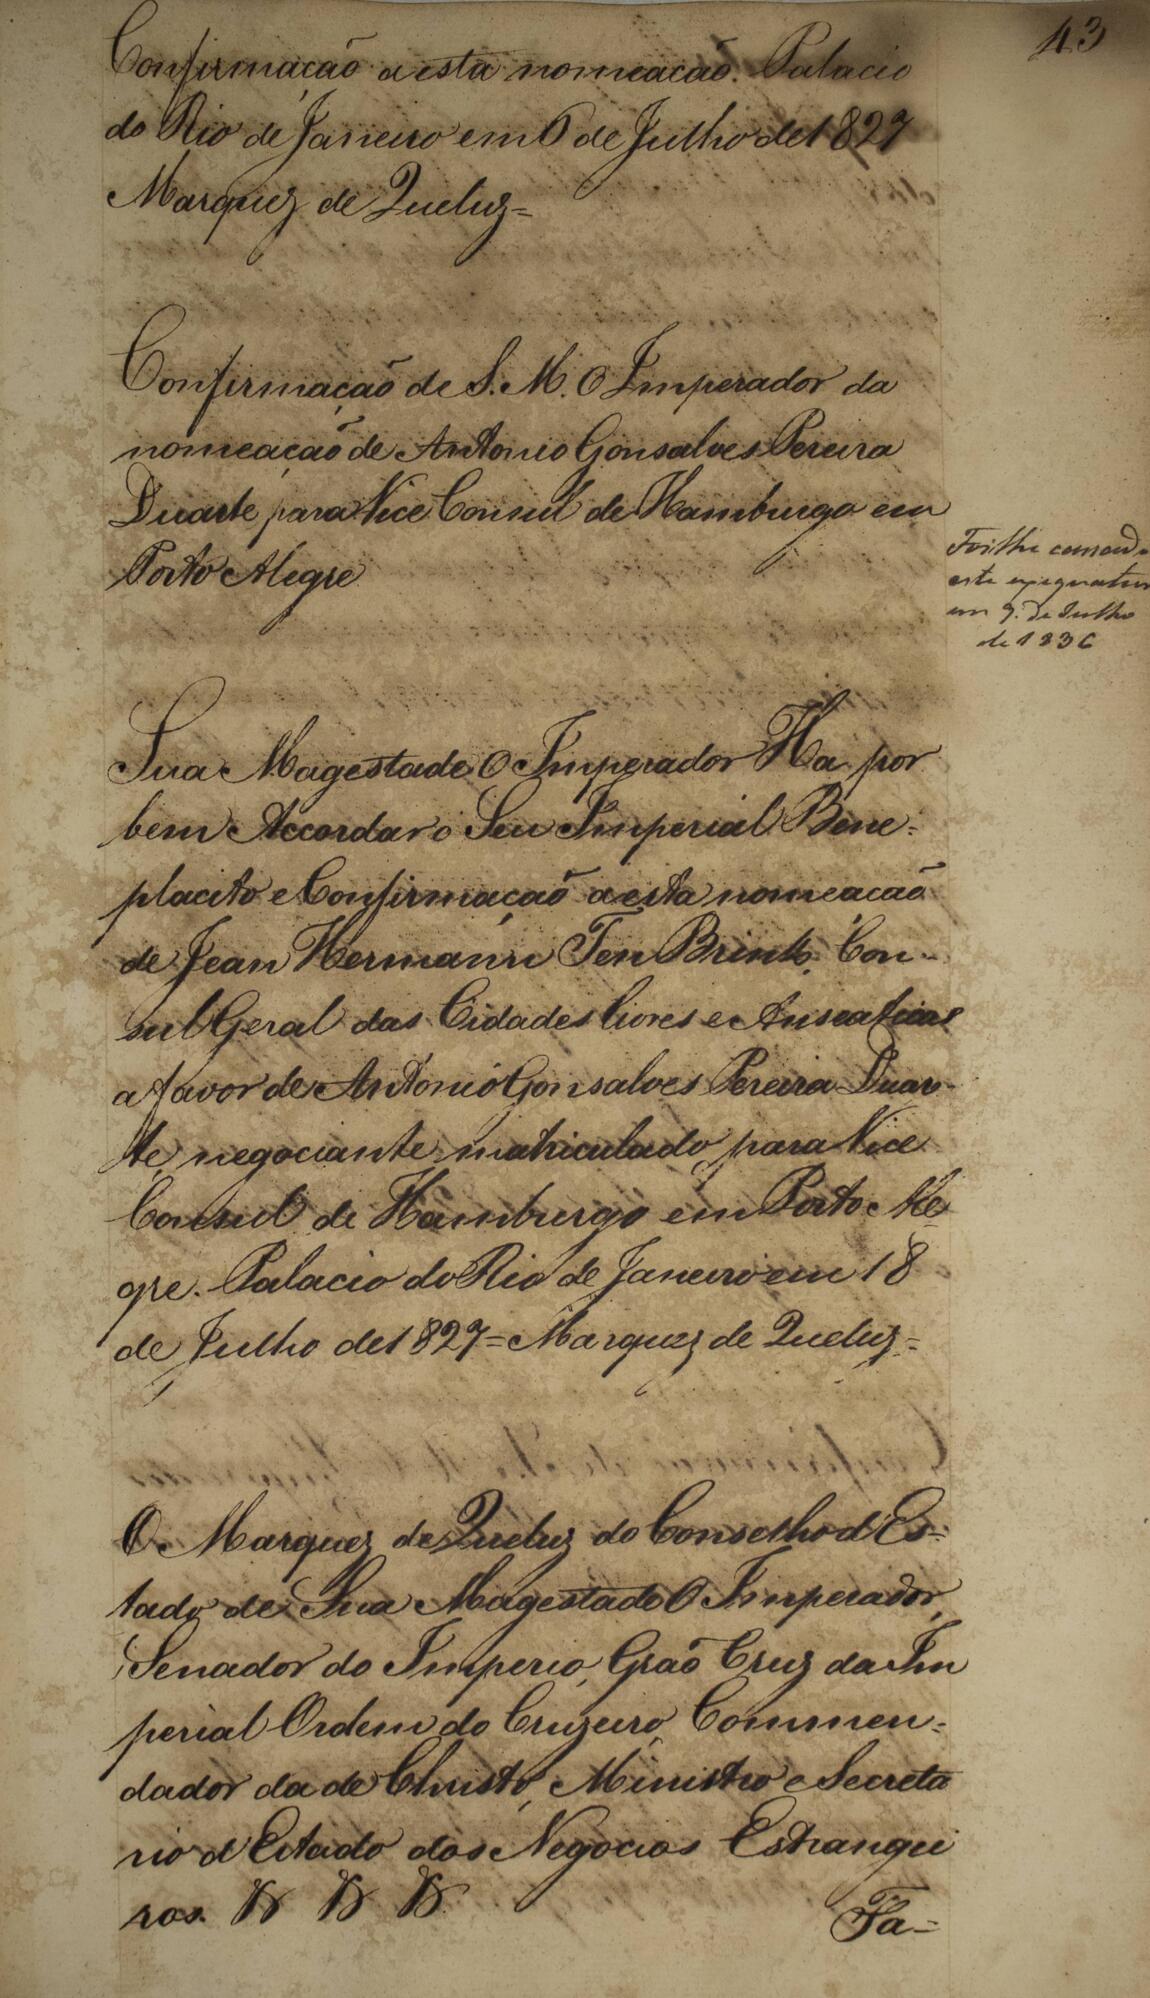 43
Confirmação a esta nomeacaõ. Palacio
do Rio de Janeiro em 6 de Julho de 1827
Marquez de Queluz=
Confirmaçaõ de S. M. O Imperador da
nomeaçaõ de Antonio Gonsalves Pereira
Duarte para Vice Consul de Hamburgo em
Porto Alegre
este exequatur
em 9. de Julho
de 1836
Sua Magestade O Imperador Ha por
bem Accordar o Seu Imperial Bene=
placito e Confirmaçaõ a esta nomeacaõ
de Jean Hermann Ten Brink, Con-
sul Geral das Cidades livres e Anseaticas
a favor de Antonio Gonsalves Pereira Duar-
te, negociante matriculado, para Vice
Consul de Hamburgo em Porto Ale
gre. Palacio do Rio de Janeiro em 18
de Julho de 1827=Marquez de Queluz=
O Marquez de Queluz do Conselho d'Es=
tado de Sua Magestade O Imperador,
Senador do Imperio, Graõ Cruz da Im
perial Ordem do Cruzeiro, Commen=
dador da de Christo, Ministro e Secreta
rio d'Estado dos Negocios Estrangei
ros.
Fa=